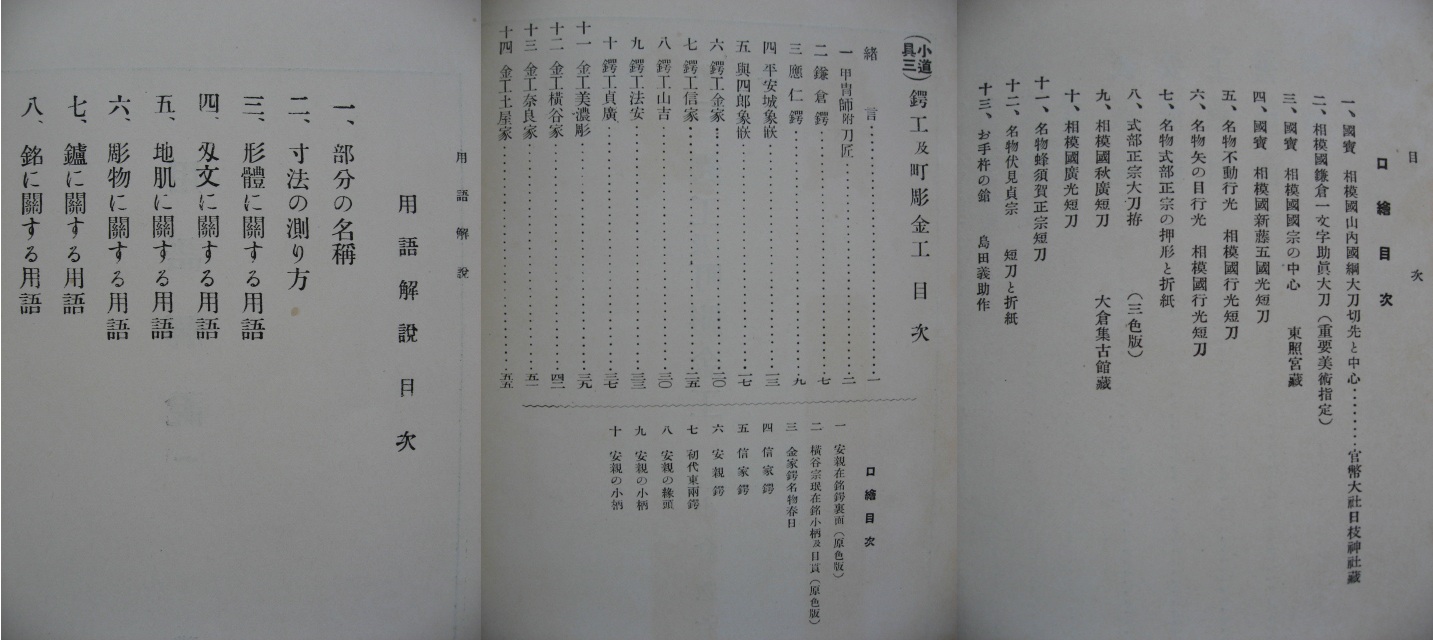 目次
口繪目次
一、國寶 相模國山內國綱大刀切先と中心………官幣大社日枝神社藏
二、相模國鎌倉一文字助眞大刀(重要美術指定)
三、國寶 相模國國宗の中心 東照宮藏
四、國寶 相模國新藤五國光短刀
五、名物不動行光 相模國行光短刀
六、名物矢の目行光 相模國行光短刀
七、名物式部正宗の押形と折紙
八、式部正宗大刀拵 (三色版)
九、相模國秋廣短刀 大倉集古館藏
十、相模國廣光短刀
十一、名物蜂須賀正宗短刀
十二、名物伏見貞宗 短刀と折紙
十三、お手杵の鎗 島田義助作
(小道具三)鍔工及町彫金工目次
緒言………一
一 甲冑師附刀匠………二
二 鎌倉鍔………七
三 應仁鍔………九
四 平安城象嵌………一三
五 與四郎象嵌………一七
六 鍔工金家………二〇
七 鍔工信家………二五
八 鍔工山吉………三〇
九 鍔工法安………三三
十 鍔工貞廣………三七
十一 金工美濃彫………三九
十二 金工橫谷家………四二
十三 金工奈良家………五一
十四 金工土屋家………五五
口繪目次
一 安親在銘鍔裏面(原色版)
二 橫谷宗珉在銘小柄及目貫(原色版)
三 金家鍔名物春日
四 信家鍔
五 信家鍔
六 安親鍔
七 初代東雨鍔
八 安親の緣頭
九 安親の小柄
十 安親の小柄
用語解說
用語解說目次
一、部分の名稱
二、寸法の測り方
三、形體に關する用語
四、刄文に關する用語
五、地肌に關する用語
六、彫物に關する用語
七、鑢に關する用語
八、銘に關する用語